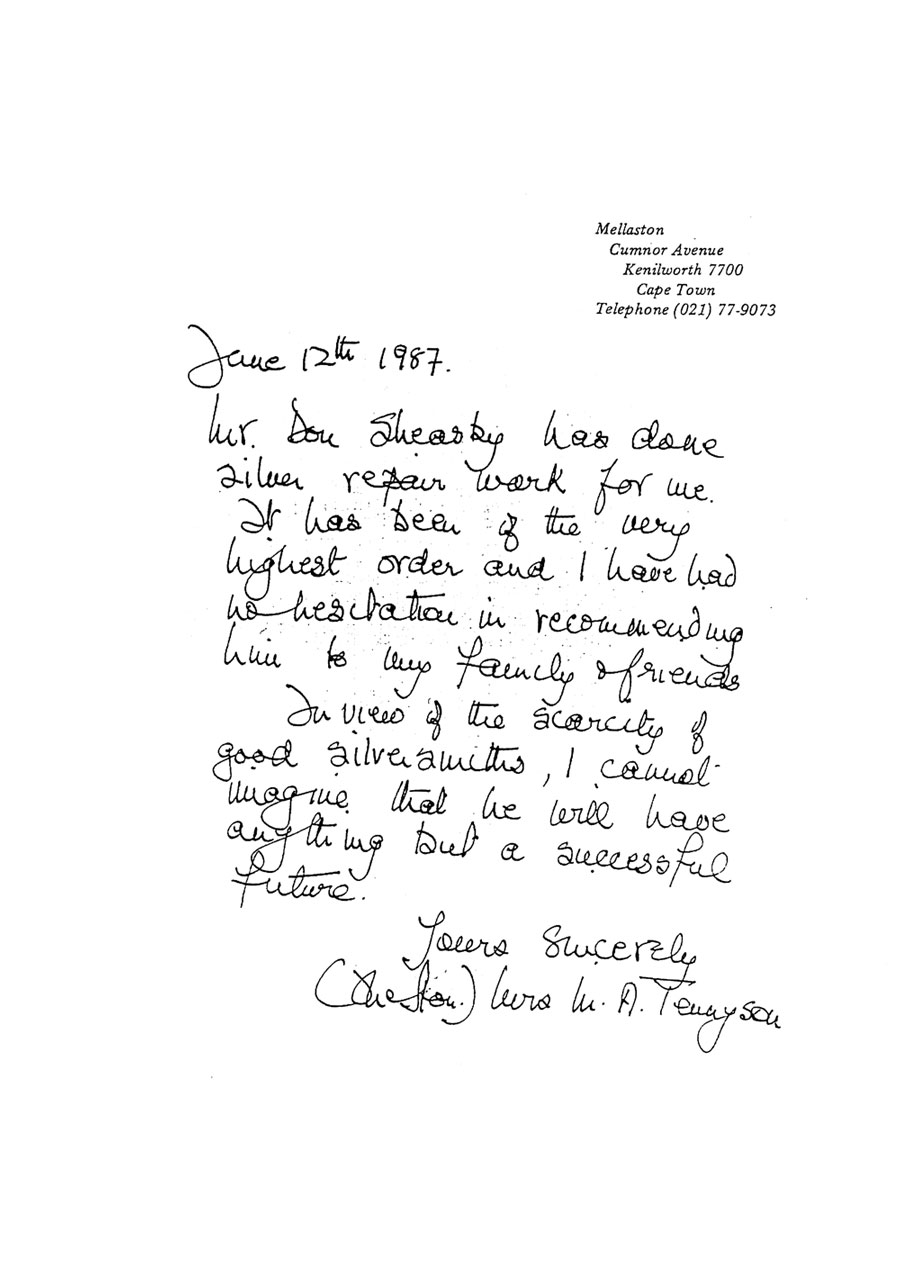 Mellaston
Cumnor Avenue
Kenilworth 7700
Cape Town
Telephone (021) 77-9073
June 12th 1987.
Mr. Don Sheasby has done
silver repair work for me.
It has been of the very
highest order and I have had
no hesitation in recommending
him to my family & friends
In view of the scarcity of
good silversmiths, I cannot
imagine that he will have
anything but a successful
future.
Yours Sincerely
(The Hon.) Mrs M. A. Tennyson